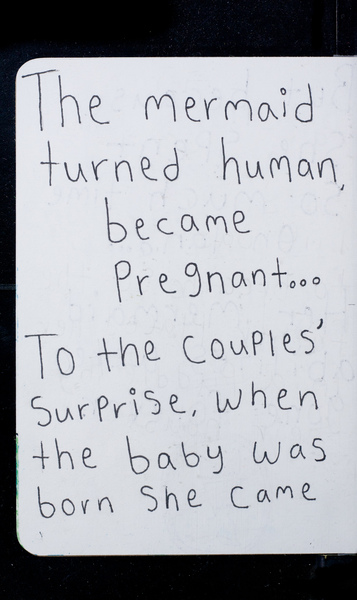 The mermaid
turned human,
became
Pregnant...
To the Couples'
Surprise, when
the baby was
born She came